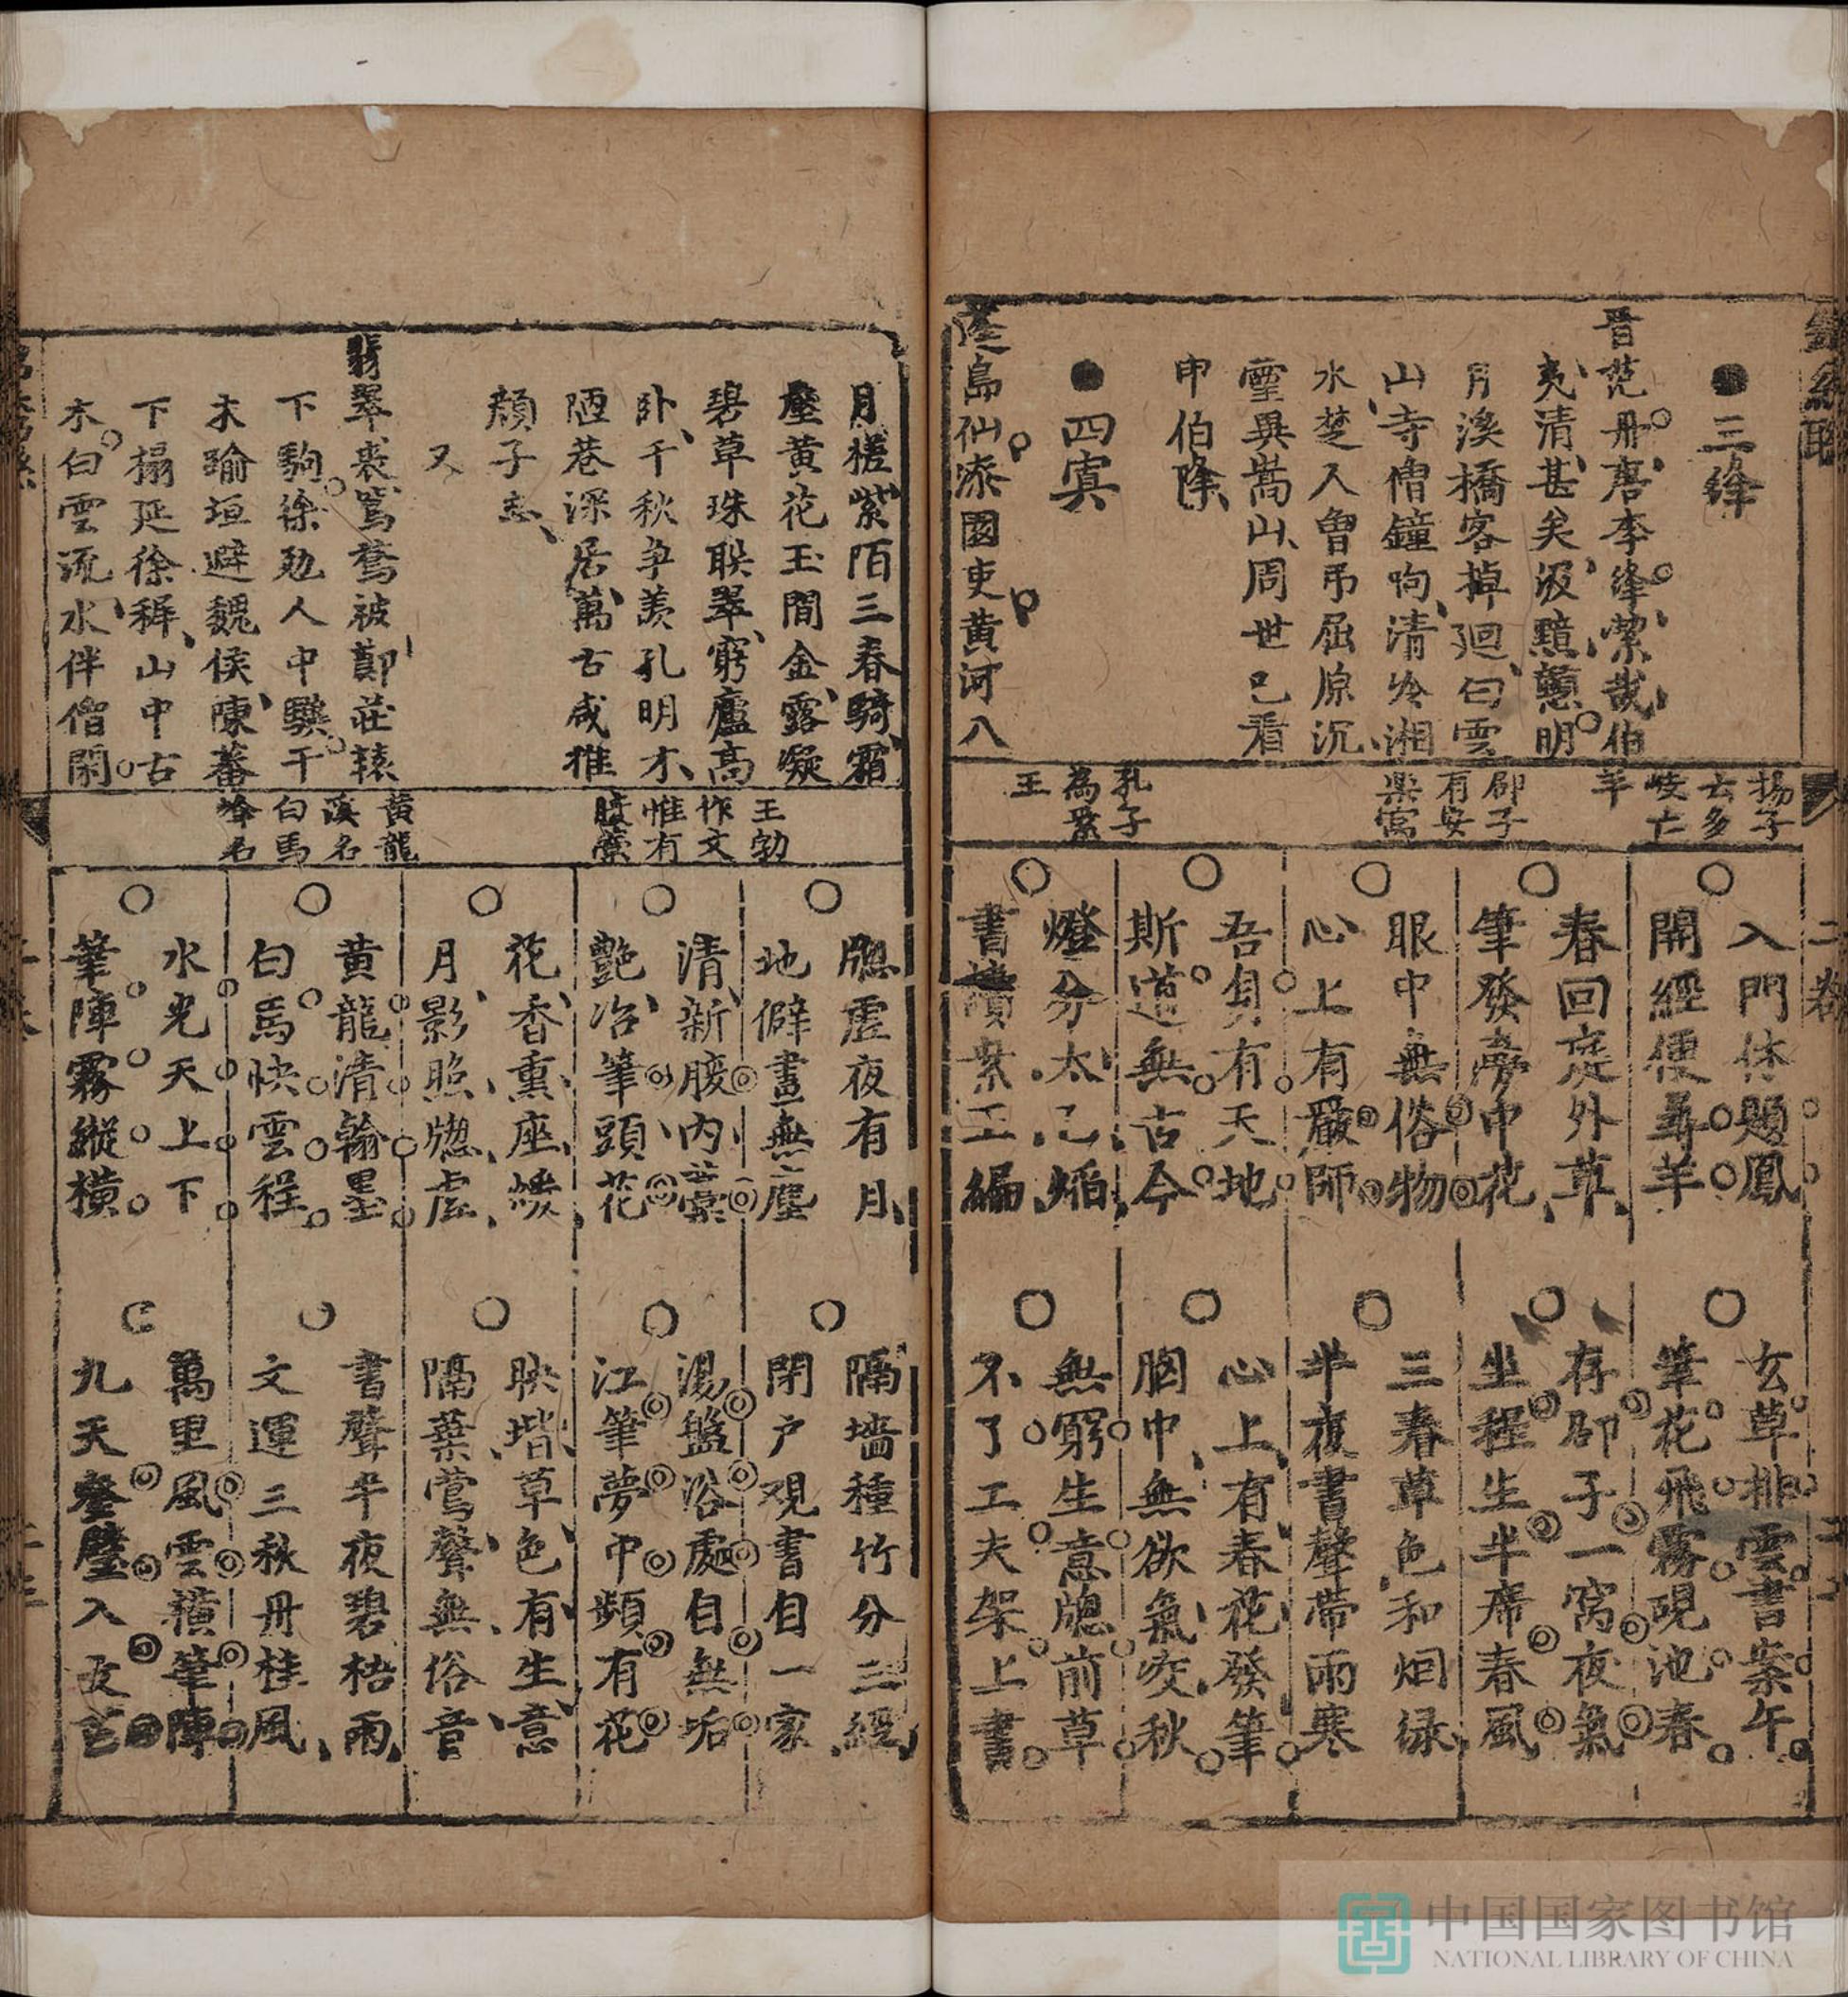 三絳
晋范丹唐李絳縈哉伯
夷清甚矣汲黯戇明
月溪橋客掉廻白雲
山寺僧鐘响清冷湘
水楚人曾吊屈原沉
靈異嵩山周世已看
申伯降
四寘
島仙漆園吏黄河八
揚子
去多
岐亡
羊
邵子
有安
樂窩
孔子
為素
王
入門休題鳳
開經便尋羊
春回庭外草
筆發夢中花
眼中無俗物
心上有嚴師
吾身有天地
斯道無古今
燈分太乙焰
書讀素王編
玄草排雲書案午
筆花飛霧硯池春
存邵子一窩夜氣
坐程生半席春風
三春草色和烟绿
半夜書聲帶雨寒
心上有春花發筆
胸中無欲氣咬秋
無窮生意牕前草
不了工夫架上書
月槎紫陌三春騎霜
塵黄花玉間金露凝
碧草珠聫翠窮廬高
卧千秋争羡孔明才
陋巷深居萬古咸推
顔子志
又
翡翠裘鴛鴦被鄭莊轅
下駒徐勉人中驥干
木踰垣避魏侯陳蕃
下榻延徐穉山中古
木白雲流水伴僧閑
王勃
作文
惟有
腹藁
黄龍
溪名
白馬
岭名
牕虚夜有月
地僻晝無塵
清新腹内藁
艶冶筆頭花
花香熏座煖
月影照牕虚
黄龍清翰墨
白馬快雲程
水光天上下
筆陣霧縱横
隔墻種竹分三經
閉户观書自一家
湯盤浴處自無垢
江筆夢中頻有花
映堦草色有生意
隔葉鶯聲無俗音
書聲半夜碧梧雨
文運三秋丹桂風
萬里風雲横筆陣
九天奎壁入文芒
中国国家图书馆
NATIONAL LIBRARY OF CHINA